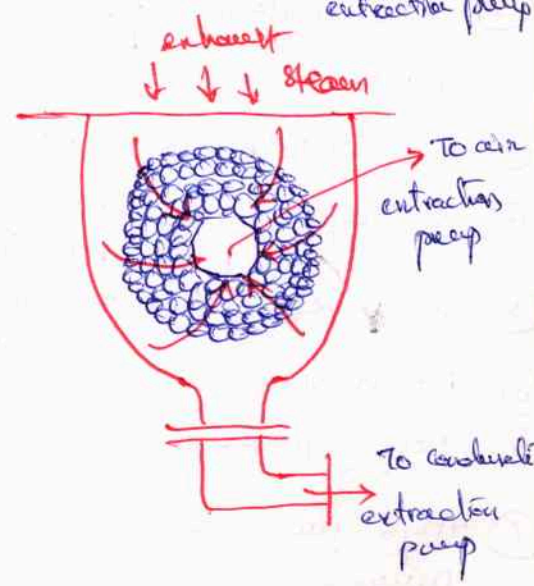 extraction pump
exhaust
steam
To air
extraction
pump
To condensate
extraction
pump